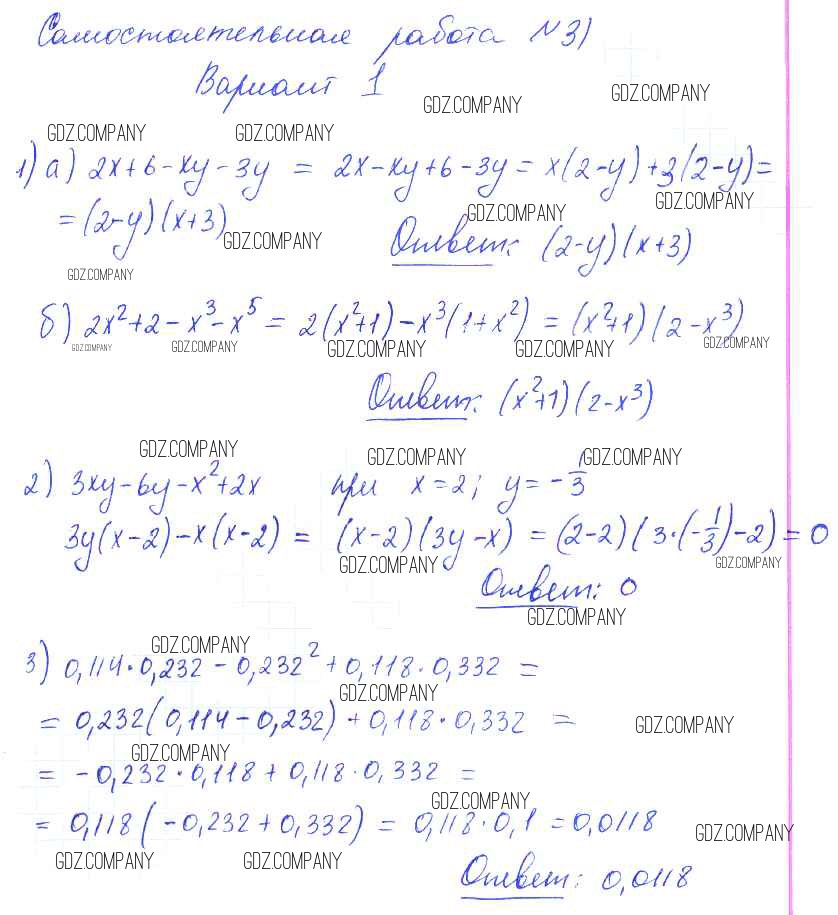 Самостоятельная работа №3)
Вариант 1
GDZ.COMPANY GDZ.COMPANY
GDZ.COMPANY GDZ.COMPANY
1) а) 2x+6-xy-3y = 2x-xy+6-3y = x(2-y)+3(2-y)=
GDZ.COMPANY GDZ.COMPANY
=(2-y)(x+3)
GDZ.COMPANY
Ответ: (2-y)(x+3)
GDZ.COMPANY
б) 2x²+2-x³-x⁵ = 2(x²+1)-x³(1+x²) = (x²+1)(2-x³)
GDZ.COMPANY GDZ.COMPANY GDZ.COMPANY GDZ.COMPANY GDZ.COMPANY
Ответ: (x²+1)(2-x³)
GDZ.COMPANY GDZ.COMPANY GDZ.COMPANY
2) 3xy-6y-x²+2x при x=2; y=-1/3
3y(x-2)-x(x-2) = (x-2)(3y-x) = (2-2)(3·(-1/3)-2)=0
GDZ.COMPANY GDZ.COMPANY
Ответ: 0
GDZ.COMPANY
GDZ.COMPANY
3) 0,114·0,232-0,232²+0,118·0,332 =
GDZ.COMPANY
= 0,232(0,114-0,232)+0,118·0,332 =
GDZ.COMPANY
GDZ.COMPANY
= -0,232·0,118+0,118·0,332 =
GDZ.COMPANY
= 0,118(-0,232+0,332) = 0,118·0,1 = 0,0118
GDZ.COMPANY
GDZ.COMPANY GDZ.COMPANY
Ответ: 0,0118